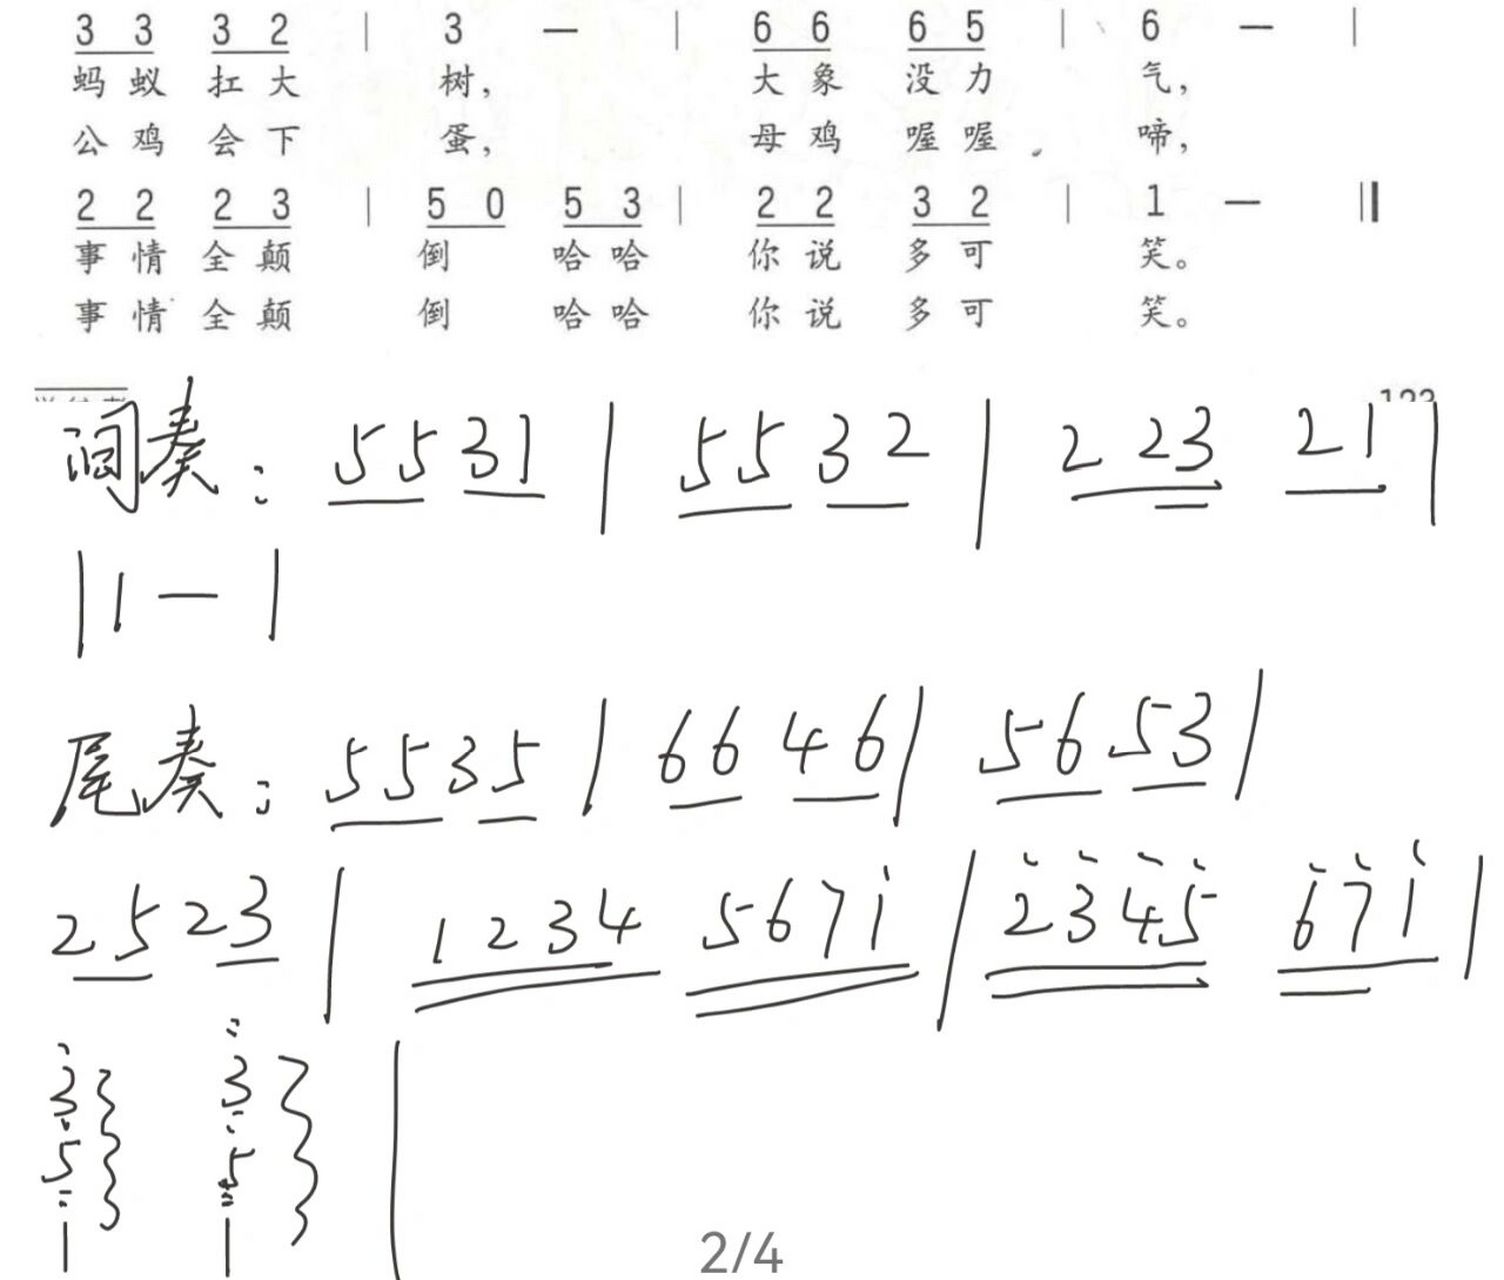 3 3 3 2 | 3 — | 6 6 6 5 | 6 — |
蚂 蚁 扛 大 树, 大 象 没 力 气,
公 鸡 会 下 蛋, 母 鸡 喔 喔 啼,
2 2 2 3 | 5 0 5 3 | 2 2 3 2 | 1 — ‖
事 情 全 颠 倒 哈 哈 你 说 多 可 笑。
事 情 全 颠 倒 哈 哈 你 说 多 可 笑。
间奏: 5 5 3 1 | 5 5 3 2 | 2 2 3 2 1 |
| 1 — |
尾奏: 5 5 3 5 | 6 6 4 6 | 5 6 5 3 |
2 5 2 3 | 1 2 3 4 5 6 7 i | 2 3 4 5 6 7 i |
3 3
5 5
1 1
2/4